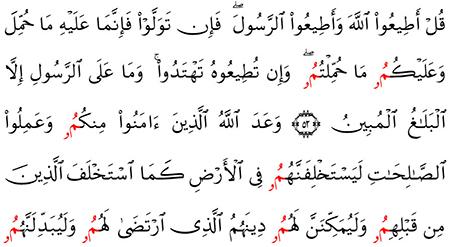 قُلْ أَطِيعُوا۟ ٱللَّهَ وَأَطِيعُوا۟ ٱلرَّسُولَ ۖ فَإِن تَوَلَّوْا۟ فَإِنَّمَا عَلَيْهِ مَا حُمِّلَ
وَعَلَيْكُمُۥ مَا حُمِّلْتُمُۥ ۖ وَإِن تُطِيعُوهُ تَهْتَدُوا۟ ۚ وَمَا عَلَى ٱلرَّسُولِ إِلَّا
ٱلْبَلَٰغُ ٱلْمُبِينُ ۝٥٣ وَعَدَ ٱللَّهُ ٱلَّذِينَ ءَامَنُوا۟ مِنكُمُۥ وَعَمِلُوا۟
ٱلصَّٰلِحَٰتِ لَيَسْتَخْلِفَنَّهُمُۥ فِى ٱلْأَرْضِ كَمَا ٱسْتَخْلَفَ ٱلَّذِينَ
مِن قَبْلِهِمُۥ وَلَيُمَكِّنَنَّ لَهُمُۥ دِينَهُمُ ٱلَّذِى ٱرْتَضَىٰ لَهُمُۥ وَلَيُبَدِّلَنَّهُمُۥ